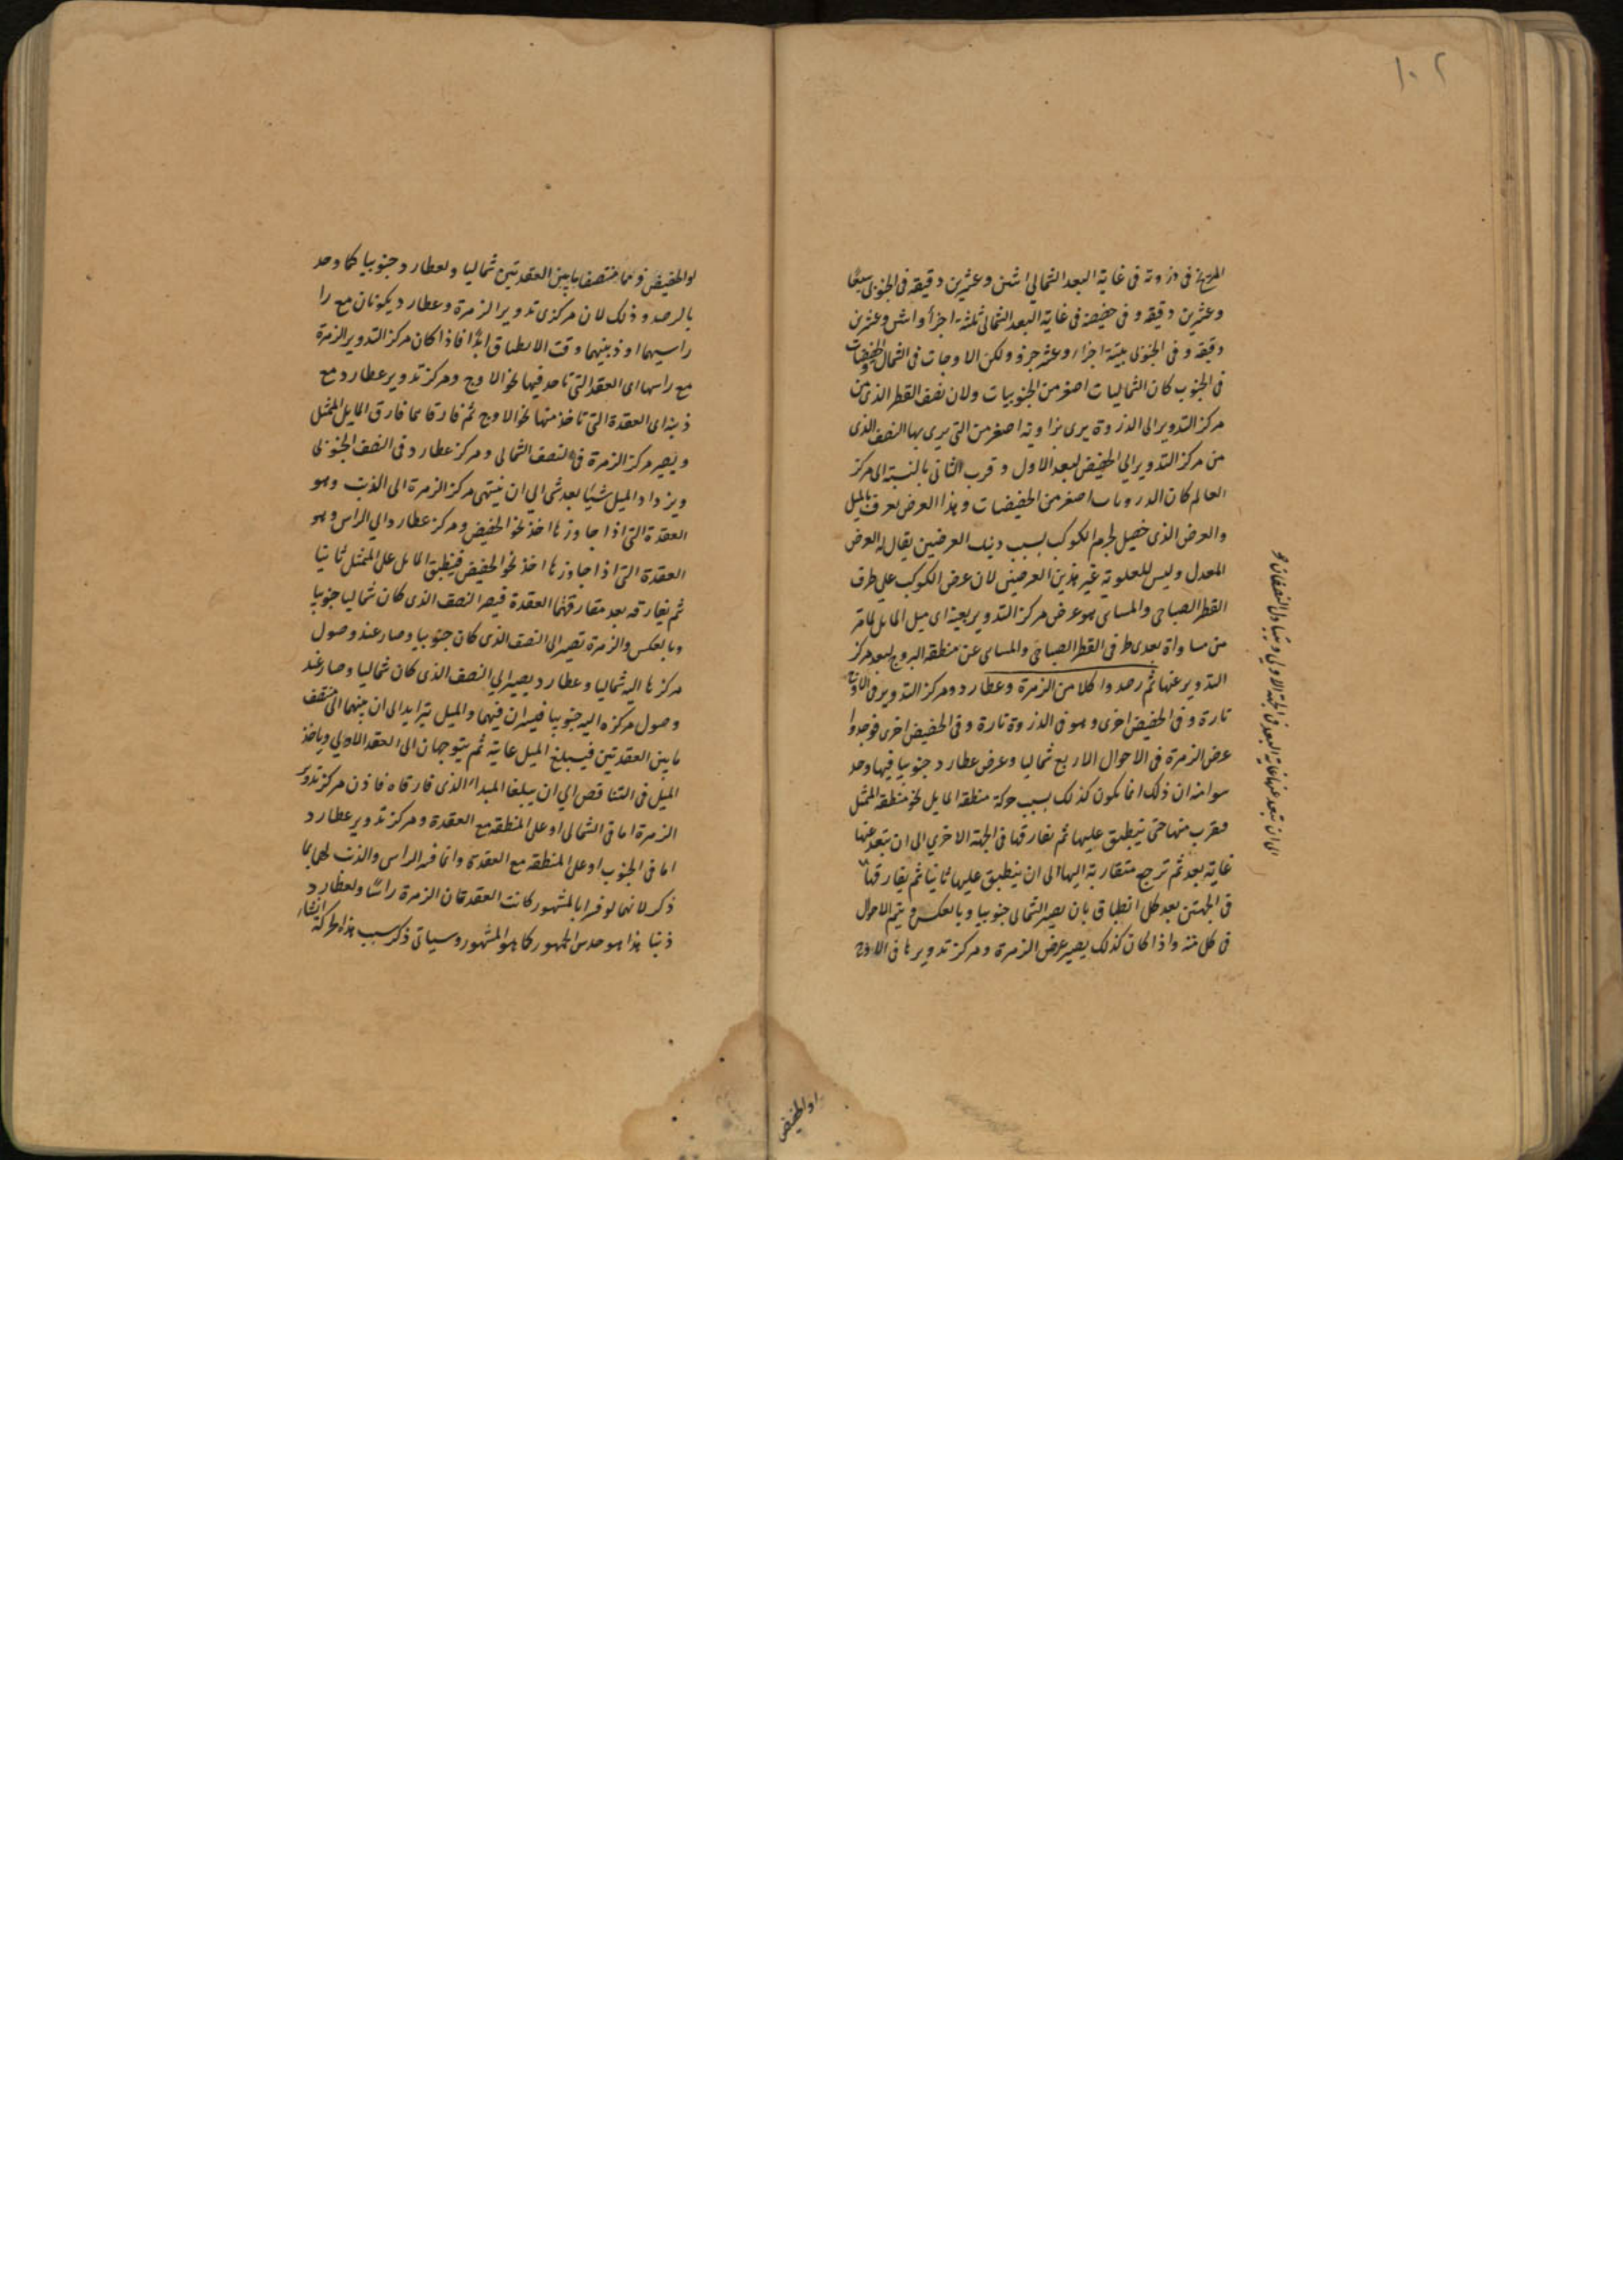 ١٠٢
المريخ في ذروته في غاية البعد الشمالي اثنين وعشرين دقيقه وفي الجنوبي سبعا
وعشرين دقيقه وفي حضيضه في غاية البعد الشمالي ثلثة اجزاء واثنين وعشرين
دقيقه وفي الجنوبي ستة اجزاء وعشر جزء ولكون الاوجات في الشمال والحضيضات
في الجنوب كان الشماليات اصغر من الجنوبيات ولان نصف القطر الذي من
مركز التدوير الى الذروة يرى بزاوية اصغر من التي يرى بها النصف الذي
من مركز التدوير الي الحضيض لبعد الاول وقرب الثاني بالنسبة الى مركز
العالم كان الذرويات اصغر من الحضيضات وهذا العرض يعرف بالميل
والعرض الذي يحصل لجرم الكوكب بسبب ذينك العرضين يقال له العرض
المعدل وليس للعلوية غير هذين العرضين لان عرض الكوكب علي طرف
القطر الصباحي والمسائي هو عرض مركز التدوير بعينه اي ميل المايل لما مر
من مساواة بعدي طرفي القطر الصباحي والمسائي عن منطقه البروج لبعد مركز
التدوير عنها ثم رصدوا كلا من الزهرة وعطارد ومركز التدوير في الاوج
تارة وفي الحضيض اخرى وهو في الذروة تارة وفي الحضيض اخرى فوجدوا
عرض الزهرة في الاحوال الاربع شماليا وعرض عطارد جنوبيا فيها وحد
سوا منه ان ذلك انما يكون كذلك بسبب حركة منطقه المايل نحو منطقه الممثل
فيقرب منها حتى ينطبق عليها ثم يفارقها في الجهة الاخري الى ان يبتعد عنها
غاية بعد ثم ترجع متقاربة اليها الى ان ينطبق عليها ثانيا ثم يفارقها
في الجهتين بعد كل انطباق بان يصير الشمالي جنوبيا وبالعكس ويتم الاحوال
في كل سنة واذا كان كذلك يصير عرض الزهرة ومركز تدويرها في الاوج
الى ان تبعد عنها غاية البعد في الجهة الاولي ويتبادل النصفان
او الحضيض
او الحضيض وهما منتصفا ما بين العقدتين شماليا ولعطارد جنوبيا كما وجد
بالرصد وذلك لان مركزي تدوير الزهرة وعطارد يكونان مع را
راسيهما او ذنبيهما وقت الانطباق ابدا فاذا كان مركز التدوير الزهرة
مع راسها اي العقدة التي تاخذ فيها نحو الاوج ومركز تدوير عطارد مع
ذنبه اي العقدة التي تاخذ منها نحو الاوج ثم فارقاهما فارق المايل الممثل
ويصير مركز الزهرة في النصف الشمالي ومركز عطارد في النصف الجنوبي
ويزداد الميل شيئا بعد شي الي ان ينتهي مركز الزهرة الى الذنب وهو
العقدة التي اذا جاوزها اخذ نحو الحضيض ومركز عطارد الي الراس وهو
العقدة التي اذا جاوزها اخذ نحو الحضيض فينطبق المايل على الممثل ثانيا
ثم يفارقه بعد مفارقتهما العقدة فيصير النصف الذي كان شماليا جنوبيا
وبالعكس والزهرة تصير الى النصف الذي كان جنوبيا وصار عند وصول
مركزها اليه شماليا وعطارد يصير الي النصف الذي كان شماليا وصار عند
وصول مركزه اليه جنوبيا فيسيران فيهما والميل يتزايد الى ان ينتهيا الى منتصف
ما بين العقدتين فيبلغ الميل غايته ثم يتوجهان الى العقد الاولي وياخذ
الميل في التناقص الي ان يبلغا المبداء الذي فارقاه فاذن مركز تدوير
الزهرة اما في الشمالي او على المنطقه مع العقدة ومركز تدوير عطارد
اما في الجنوب او على المنطقه مع العقدة وانما فسر الراس والذنب لهما بما
ذكر لانهما لو فسرا بالمشهور كانت العقدتان الزهرة راسا ولعطارد
ذنبا هذا هو حدس الجمهور كما هو المشهور وسياتي ذكر سبب هذه الحركة انشاء